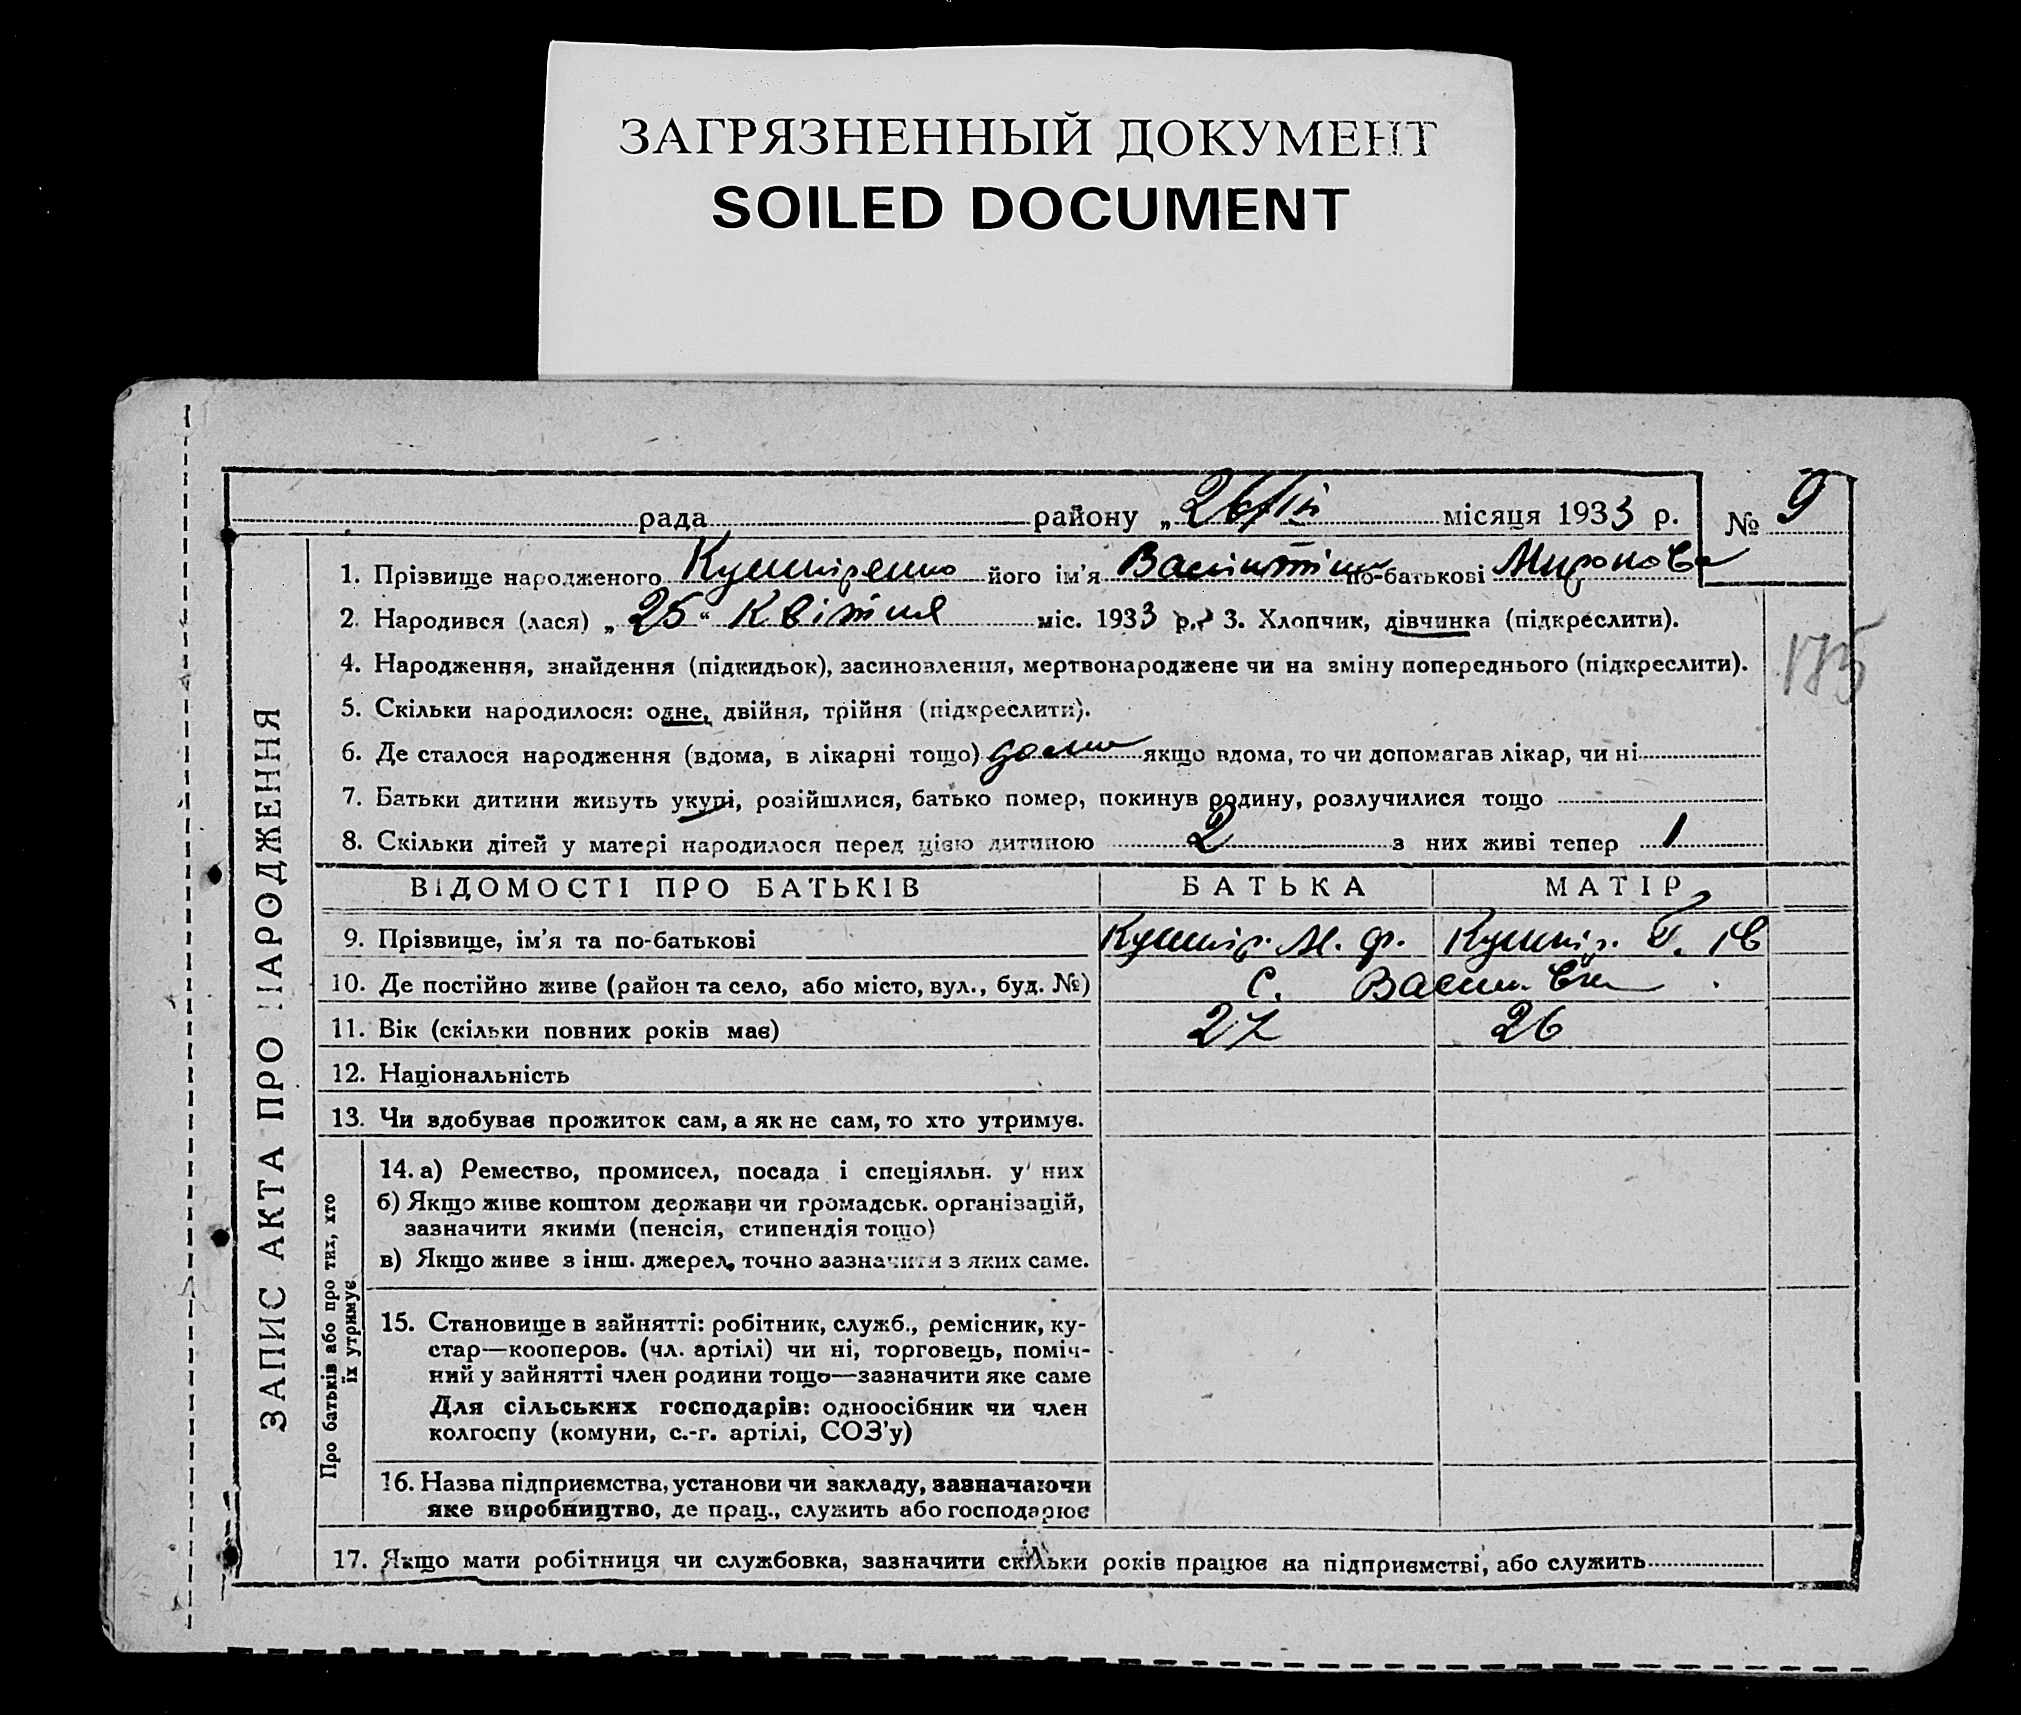 ЗАГРЯЗНЕННЫЙ ДОКУМЕНТ
SOILED DOCUMENT
рада району „ 26/IV місяця 1933 р. № 9
1. Прізвище народженого Кушніренко його ім’я по-батькові Миронова
2. Народився (лася) „ 25 “ Квітня міс. 1933 р. 3. Хлопчик, дівчинка (підкреслити).
175
4. Народження, знайдення (підкидьок), засиновлення, мертвонароджене чи на зміну попереднього (підкреслити).
5. Скільки народилося: одне, двійня, трійня (підкреслити).
6. Де сталося народження (вдома, в лікарні тощо) дома якщо вдома, то чи допомагав лікар, чи ні
7. Батьки дитини живуть укупі, розійшлися, батько помер, покинув родину, розлучилися тощо
8. Скільки дітей у матері народилося перед цією дитиною 2 з них живі тепер 1
ЗАПИС АКТА ПРО НАРОДЖЕННЯ
ВІДОМОСТІ ПРО БАТЬКІВ БАТЬКА МАТІР
9. Прізвище, ім’я та по-батькові Кушнір. М. Ф. Кушнір.
10. Де постійно живе (район та село, або місто, вул., буд. №) с.
11. Вік (скільки повних років має) 27 26
12. Національність
13. Чи здобуває прожиток сам, а як не сам, то хто утримує.
Про батьків або про тих, хто
їх утримує
14. а) Ремество, промисел, посада і спеціяльн. у них
б) Якщо живе коштом держави чи громадськ. організацій,
зазначити якими (пенсія, стипендія тощо)
в) Якщо живе з інш. джерел, точно зазначити з яких саме.
15. Становище в зайнятті: робітник, служб., ремісник, ку-
стар—кооперов. (чл. артілі) чи ні, торговець, поміч-
ний у зайнятті член родини тощо—зазначити яке саме
Для сільських господарів: одноосібник чи член
колгоспу (комуни, с.-г. артілі, СОЗ’у)
16. Назва підприємства, установи чи закладу, зазначаючи
яке виробництво, де прац., служить або господарює
17. Якщо мати робітниця чи службовка, зазначити скільки років працює на підприємстві, або служить